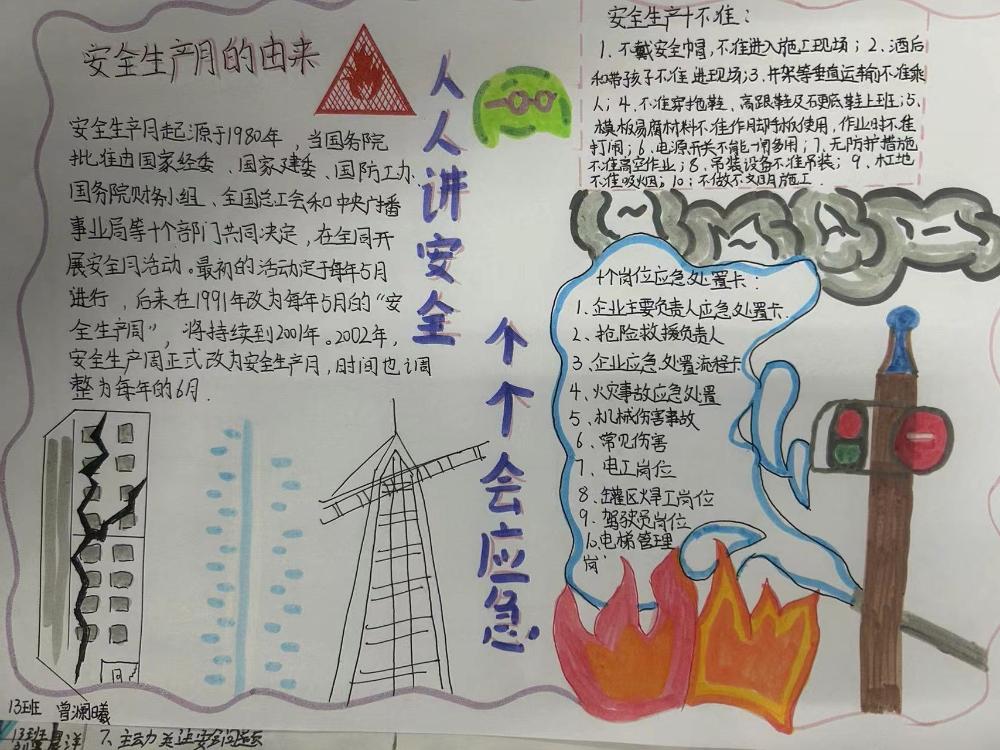 安全生产月的由来
安全生产月起源于1980年，当国务院
批准由国家经委、国家建委、国防工办、
国务院财务小组、全国总工会和中央广播
事业局等十个部门共同决定，在全国开
展安全月活动。最初的活动定于每年5月
进行，后来在1991年改为每年5月的“安
全生产周”，将持续到2001年。2002年，
安全生产周正式改为安全生产月，时间也调
整为每年的6月.
人人讲安全
个个会应急
安全生产十不准：
1、不戴安全巾冒，不准进入施工现场；2、酒后
和带孩子不准进现场；3、井架等垂直运输不准乘
人；4、不准穿拖鞋、高跟鞋及硬底鞋上班；5、
模板易腐材料不准作脚手板使用，作业时不准
打闹；6、电源开关不能一闸多用；7、无防护措施
不准高空作业；8、吊装设备不准吊装；9、木工地
不准吸烟；10：不做不文明施工.
十个岗位应急处置卡：
1、企业主要负责人应急处置卡.
2、抢险救援负责人
3、企业应急处置流程卡
4、火灾事故应急处置
5、机械伤害事故
6、常见伤害
7、电工岗位
8、罐区火旱工岗位
9、驾驶员岗位
10、电梯管理
岗
13班 曾澜曦
13班
7、主动关注安全问题